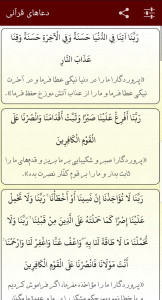 دعاهای قرآنی
رَبَّنَا آتِنَا فِي الدُّنْيَا حَسَنَةً وَفِي الْآخِرَةِ حَسَنَةً وَقِنَا
عَذَابَ النَّارِ
«پروردگارا ما را در دنیا نیکی عطا فرما و در آخرت
نیکی عطا فرما و ما را از عذاب آتش دوزخ حفظ فرما»
رَبَّنَا أَفْرِغْ عَلَيْنَا صَبْرًا وَثَبِّتْ أَقْدَامَنَا وَانْصُرْنَا عَلَى
الْقَوْمِ الْكَافِرِينَ
«پروردگارا صبر و شکیبایی بر ما بریز و قدمهای ما را
ثابت بدار و ما را بر قوم کفار نصرت بده»
رَبَّنَا لَا تُؤَاخِذْنَا إِنْ نَسِينَا أَوْ أَخْطَأْنَا ۚ رَبَّنَا وَلَا تَحْمِلْ
عَلَيْنَا إِصْرًا كَمَا حَمَلْتَهُ عَلَى الَّذِينَ مِنْ قَبْلِنَا ۚ رَبَّنَا وَلَا
تُحَمِّلْنَا مَا لَا طَاقَةَ لَنَا بِهِ ۖ وَاعْفُ عَنَّا وَاغْفِرْ لَنَا وَارْحَمْنَا ۚ
أَنْتَ مَوْلَانَا فَانْصُرْنَا عَلَى الْقَوْمِ الْكَافِرِينَ
«پروردگارا ما را مؤاخذه مفرما، اگر فراموش کردیم